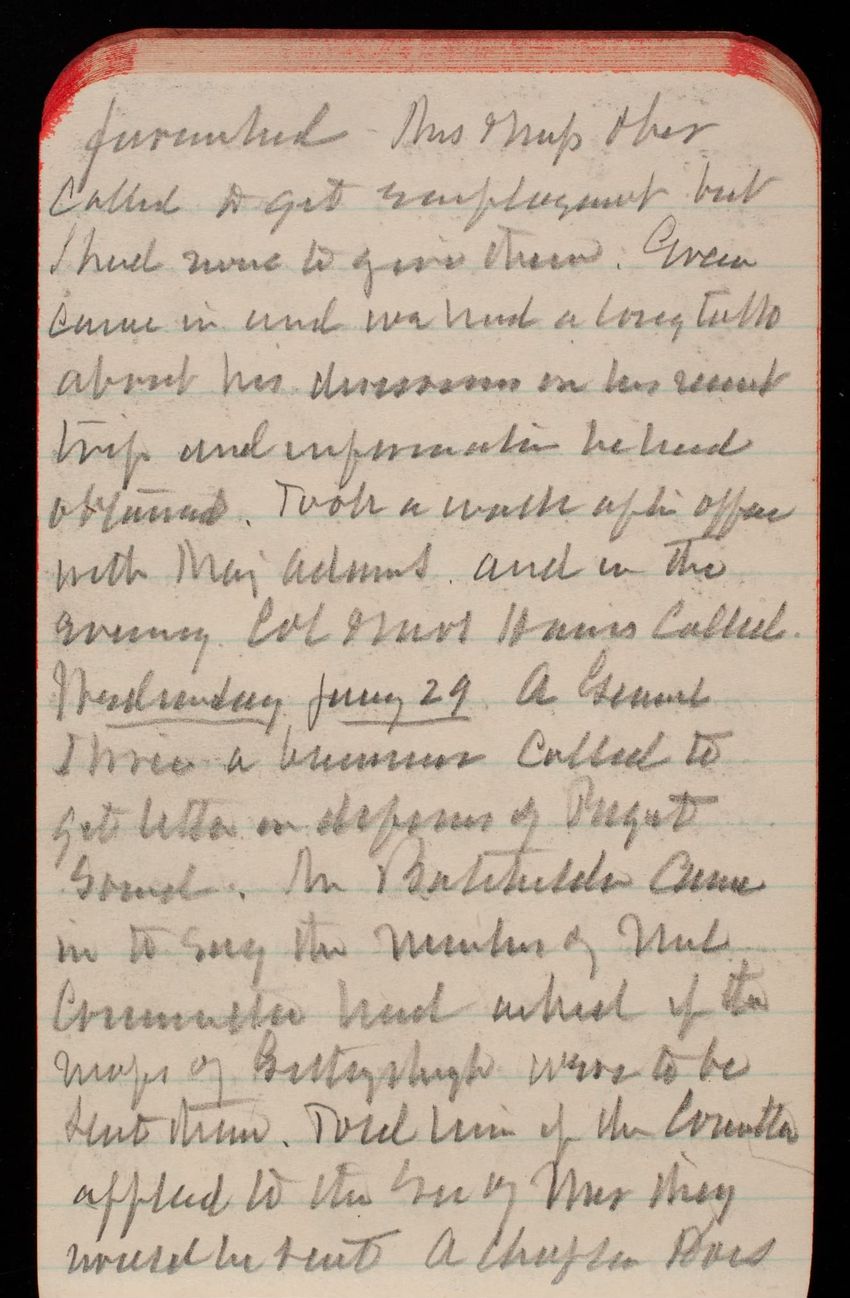 furnished Mrs & Miss Ober
Called to get employment but
I had none to give them. Green
came in and we had a long talk
about his discussions on his recent
trip and information he had
obtained. Took a walk after office
with Maj Adams. and in the
evening Col & Mrs Hains Called.
Wednesday Jany 29 A General
a Called to
get letter on defenses of Puget
Sound. Mr Batchelder Came
in to say the Members of Mil
Committee had asked if the
maps of Gettysburgh were to be
Sent them. Told him if the Comttee
applied to the Sec of War they
would be sent A chaplin